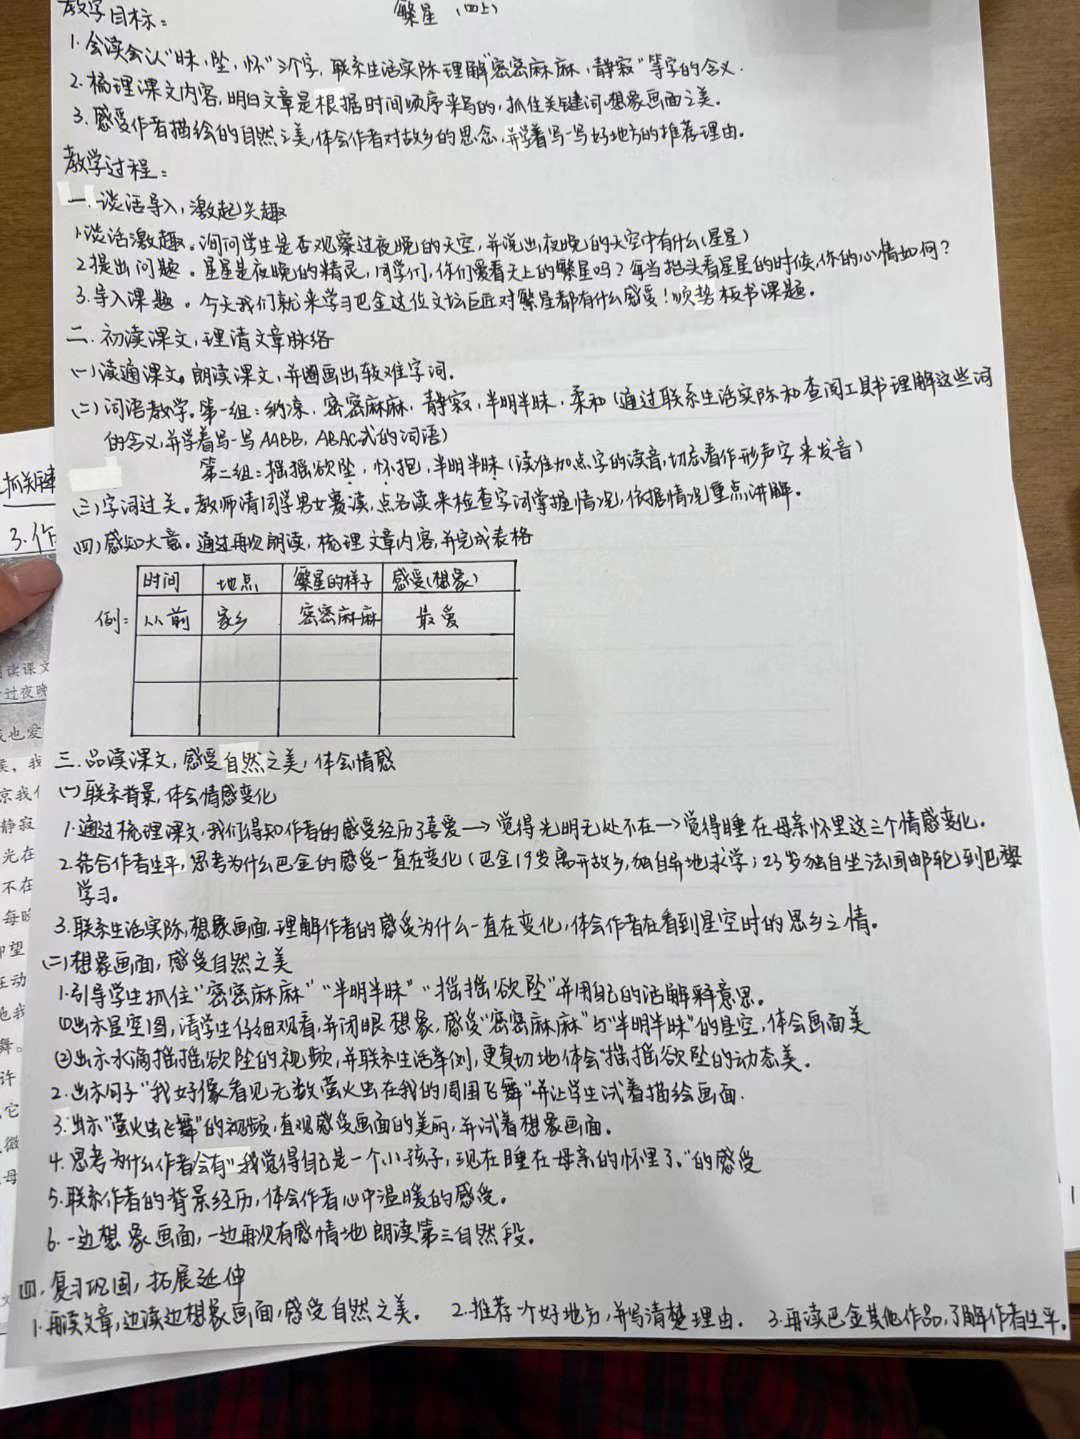 繁星（四上）
教学目标：
1. 会读会认“昧，坠，怀”3个字，联系生活实际理解“密密麻麻，静寂”等字的含义．
2. 梳理课文内容，明白文章是根据时间顺序来写的，抓住关键词，想象画面之美。
3. 感受作者描绘的自然之美，体会作者对故乡的思念，并学着写一写好地方的推荐理由。
教学过程：
一．谈话导入，激起兴趣
1.谈话激趣。询问学生是否观察过夜晚的天空，并说出夜晚的天空中有什么（星星）
2.提出问题。星星是夜晚的精灵，同学们，你们爱看天上的繁星吗？每当抬头看星星的时候，你的心情如何？
3.导入课题。今天我们就来学习巴金这位文坛巨匠对繁星都有什么感受！顺势板书课题。
二．初读课文，理清文章脉络
（一）读通课文。朗读课文，并圈画出较难字词．
（二）词语教学。第一组：纳凉．密密麻麻．静寂，半明半昧．柔和（通过联系生活实际和查阅工具书理解这些词
的含义，并学着写一写AABB，ABAC式的词语）
第二组：摇摇欲坠，怀抱，半明半昧（读准加点字的读音，切忌看作形声字来发音）
（三）字词过关。教师请同学男女赛读，点名读来检查字词掌握情况，依据情况重点讲解。
（四）感知大意。通过再次朗读，梳理文章内容，并完成表格
时间 地点 繁星的样子 感受（想象）
例： 从前 家乡 密密麻麻 最爱
三．品读课文，感受自然之美，体会情感
（一）联系背景，体会情感变化
1.通过梳理课文，我们得知作者的感受经历了喜爱→觉得光明无处不在→觉得睡在母亲怀里这三个情感变化。
2.结合作者生平，思考为什么巴金的感受一直在变化（巴金19岁离开故乡，独自异地求学；23岁独自坐法国邮轮到巴黎
学习。
3.联系生活实际，想象画面，理解作者的感受为什么一直在变化，体会作者在看到星空时的思乡之情。
（二）想象画面，感受自然之美
1.引导学生抓住“密密麻麻”“半明半昧”“摇摇欲坠”并用自己的话解释意思。
①出示星空图，请学生仔细观看，并闭眼想象，感受“密密麻麻”与“半明半昧”的星空，体会画面美
②出示水滴摇摇欲坠的视频，并联系生活举例，更真切地体会“摇摇欲坠的动态美．
2.出示句子“我好像看见无数萤火虫在我的周围飞舞”并让学生试着描绘画面．
3.出示“萤火虫飞舞”的视频，直观感受画面的美丽，并试着想象画面。
4.思考为什么作者会有“我觉得自己是一个小孩子，现在睡在母亲的怀里了。”的感受
5.联系作者的背景经历，体会作者心中温暖的感受。
6.一边想象画面，一边再次有感情地朗读第三自然段。
四．复习巩固，拓展延伸
1.再读文章，边读边想象画面，感受自然之美． 2.推荐一个好地方，并写清楚理由． 3.再读巴金其他作品，了解作者生平。
抓关键
3.作
读课文
过夜晚
也爱
，我
静寂
光在
不在
每晚
仰望
在动
舞。
许
它
微
母